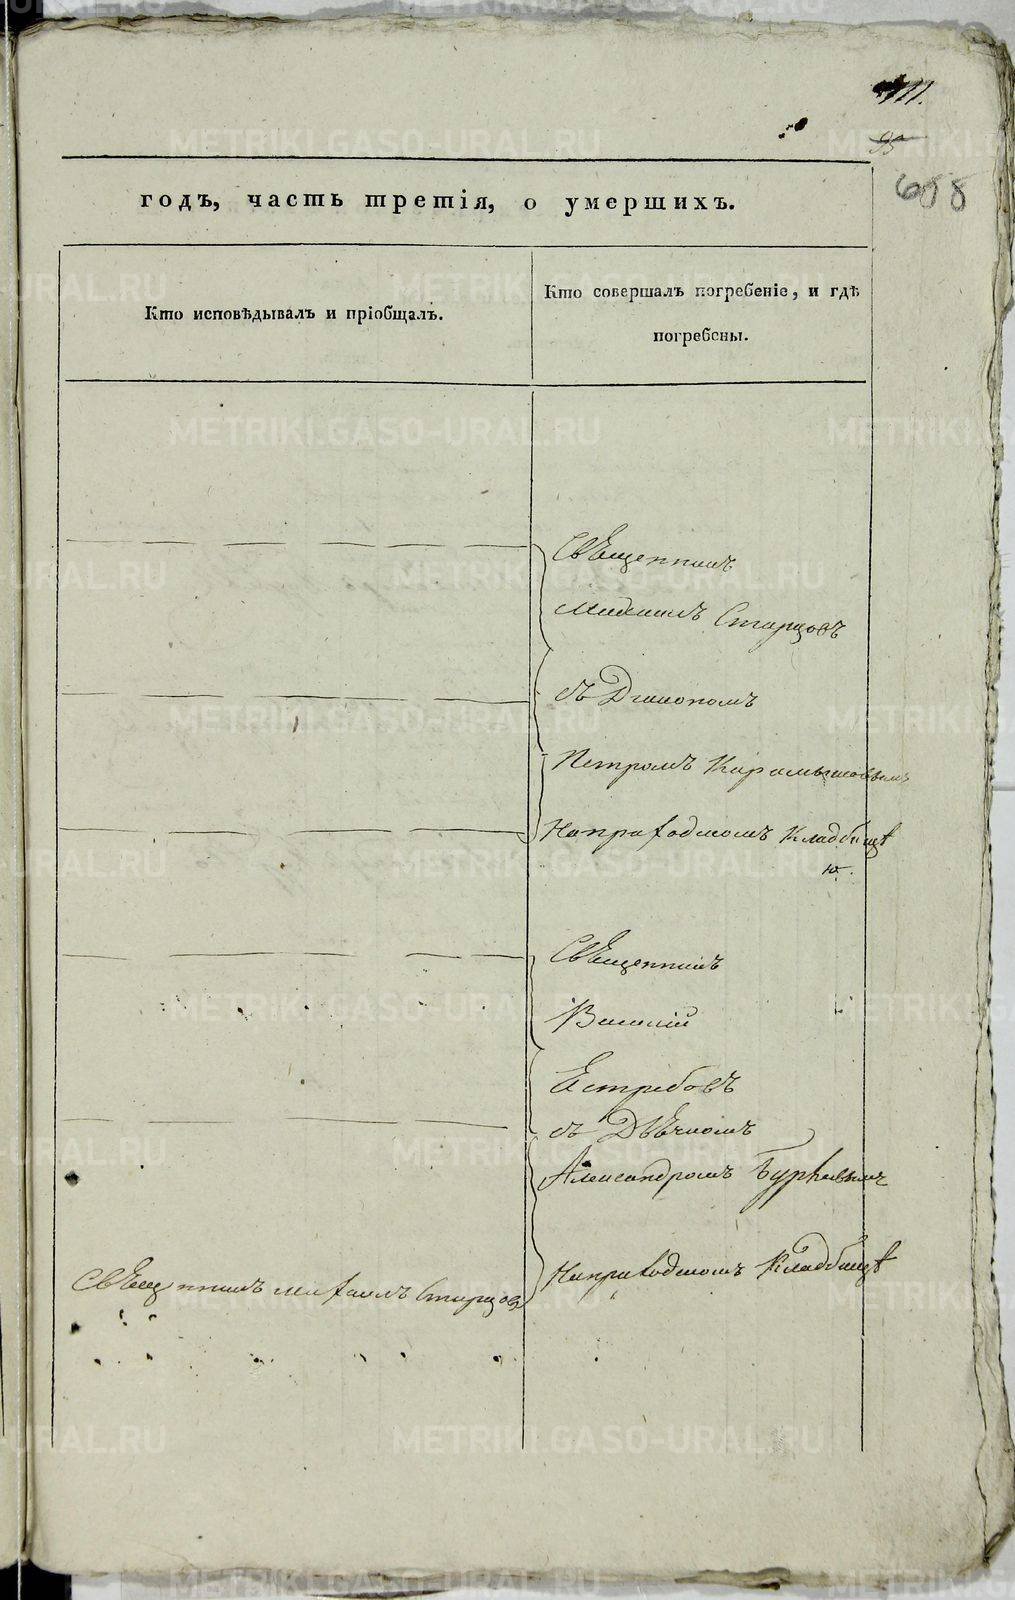 111.
95
688
годъ, часть третія, о умершихъ.
Кто исповѣдывалъ и пріобщалъ.
Кто совершалъ погребеніе, и гдѣ
погребены.
Священникъ
Михаилъ Старцовъ
съ Диакономъ
Петромъ Карамышовымъ
На приходскомъ Кладбищѣ
Священникъ
Василій
Ястребовъ
съ Дьячкомъ
Александромъ
На приходскомъ Кладбищѣ
Священникъ Михаилъ Старцовъ
METRIKI.GASO-URAL.RU